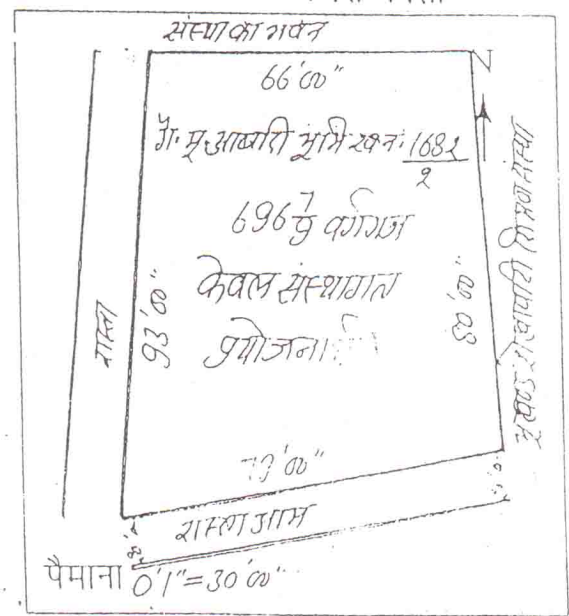 संस्था का भवन
66'00"
N
गै. मु. आबादी भूमि ख.नं. 1682/2
696 7/9 वर्गगज
केवल संस्थागत
प्रयोजनार्थ
रास्ता
93'00"
80'00"
भूखण्ड शेखावाटी शिक्षण संस्था
70'00"
रास्ता आम
पैमाना 0'1"=30'00"